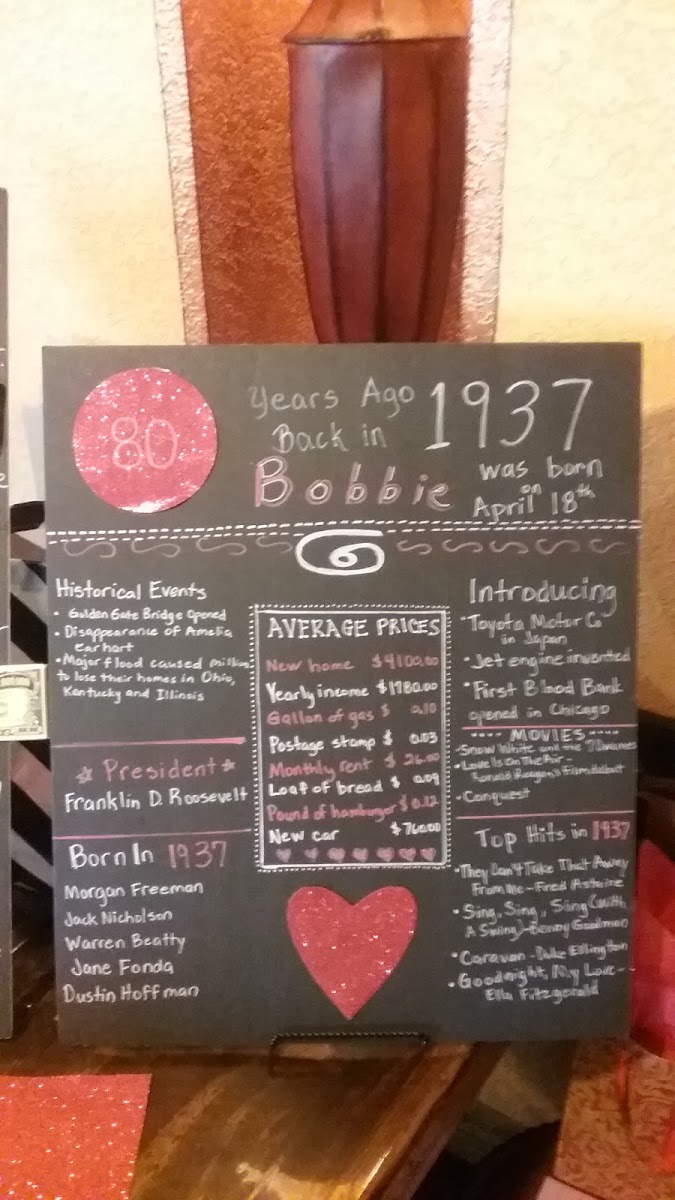 80
Years Ago
Back in
1937
Bobbie
was born
on
April 18th
Historical Events
• Golden Gate Bridge Opened
• Disappearance of Amelia
earhart
• Major flood caused millions
to lose their homes in Ohio,
Kentucky and Illinois
☆ President ☆
Franklin D. Roosevelt
Born In 1937
Morgan Freeman
Jack Nicholson
Warren Beatty
Jane Fonda
Dustin Hoffman
AVERAGE PRICES
New home $4100.00
Yearly income $1780.00
Gallon of gas $ 0.10
Postage stamp $ 0.03
Monthly rent $ 26.00
Loaf of bread $ 0.09
Pound of hamburger $ 0.12
New car $760.00
Introducing
• Toyota Motor Co
in Japan
• Jet engine invented
• First Blood Bank
opened in Chicago
---- MOVIES ----
• Snow White and the 7 Dwarves
• Love Is On The Air -
Ronald Reagan's Film debut
• Conquest
Top Hits in 1937
• They Can't Take That Away
From Me - Fred Astaire
• Sing, Sing, Sing (with
A Swing) - Benny Goodman
• Caravan - Duke Ellington
• Goodnight, My Love -
Ella Fitzgerald